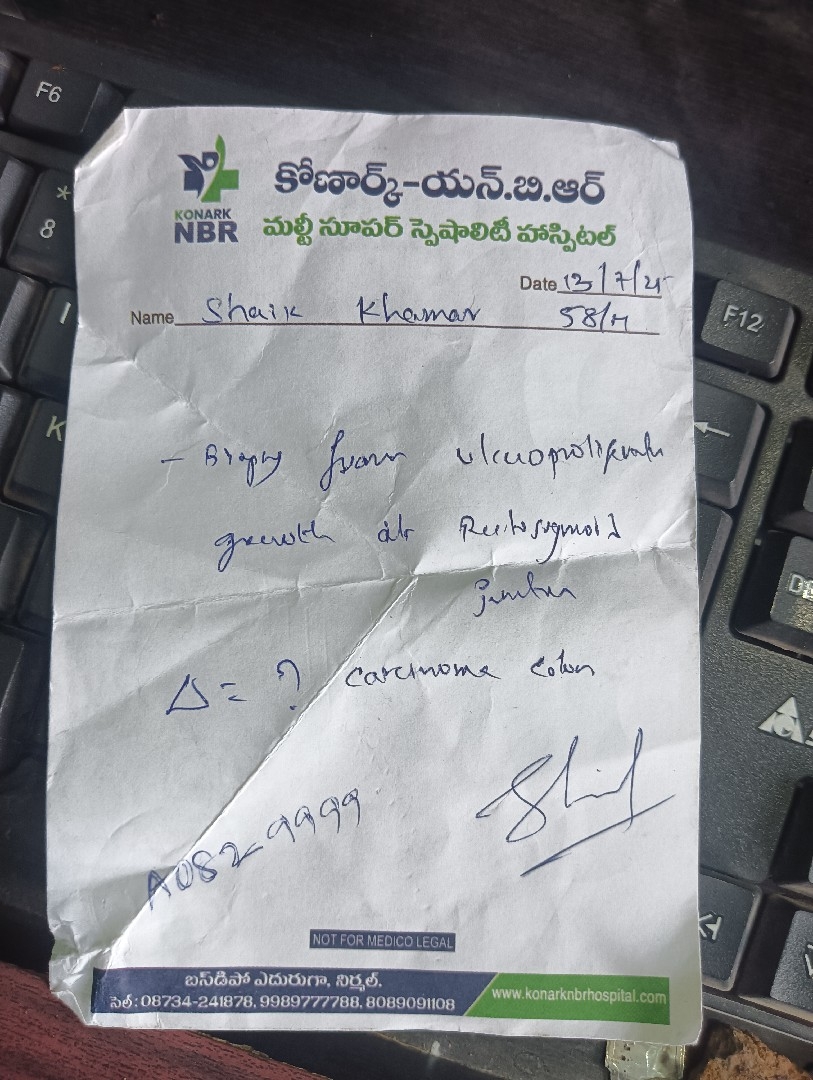 కోణార్క్-యన్.బి.ఆర్
KONARK
NBR
మల్టీ సూపర్ స్పెషాలిటీ హాస్పిటల్
Date 13/7/25
Name Shaik Khamar 58/M
- Biopsy from ulceroproliferative
growth at Rectosigmoid
junction
Δ = ? Carcinoma colon
A082-9999
NOT FOR MEDICO LEGAL
బస్‌డిపో ఎదురుగా, నిర్మల్.
సెల్ : 08734-241878, 9989777788, 8089091108
www.konarknbrhospital.com
F6
*
8
I
K
F12